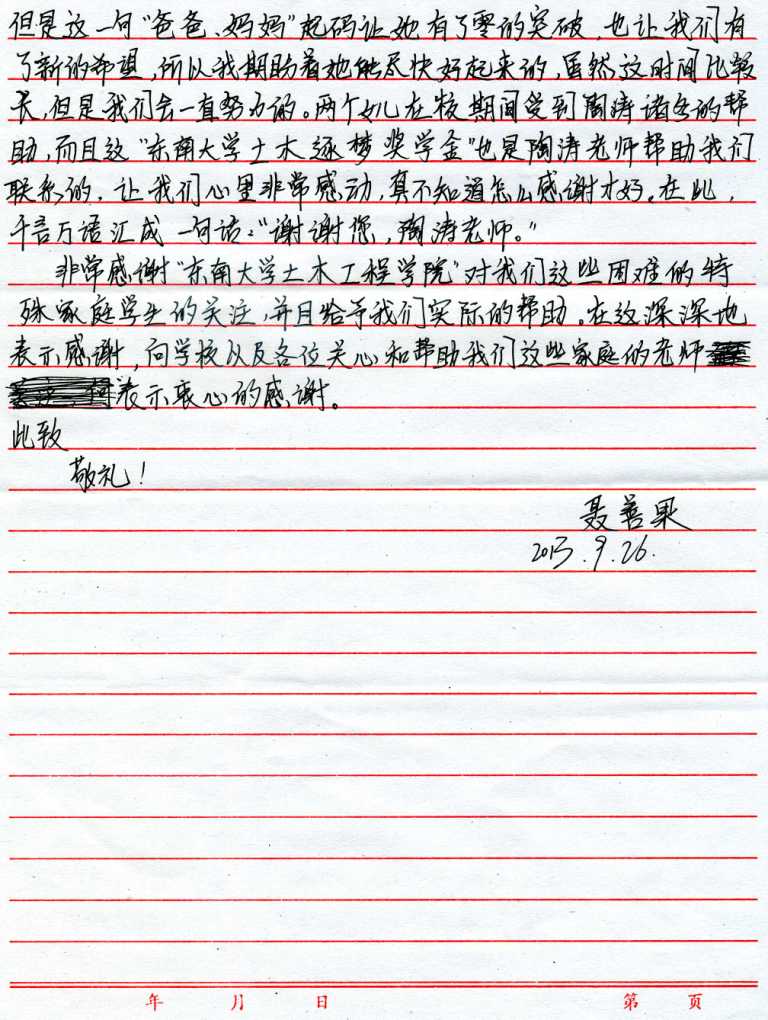 但是这一句“爸爸、妈妈”起码让她有了零的突破,也让我们有
了新的希望,所以我期盼着她能尽快好起来的,虽然这时间比较
长,但是我们会一直努力的。两个女儿在校期间受到陶涛诸多的帮
助,而且这“东南大学土木逐梦奖学金”也是陶涛老师帮助我们
联系的,让我们心里非常感动,真不知道怎么感谢才好。在此,
千言万语汇成一句话:“谢谢您,陶涛老师。”
非常感谢“东南大学土木工程学院”对我们这些困难的特
殊家庭学生的关注,并且给予我们实际的帮助。在这深深地
表示感谢,向学校以及各位关心和帮助我们这些家庭的老师
表示衷心的感谢。
此致
敬礼!
聂善果
2013.9.26.
年 月 日 第 页